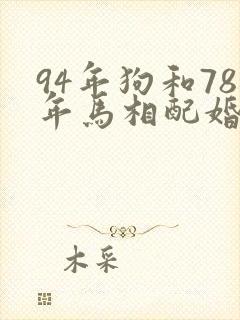 94年狗和78
年馬相配婚
木采